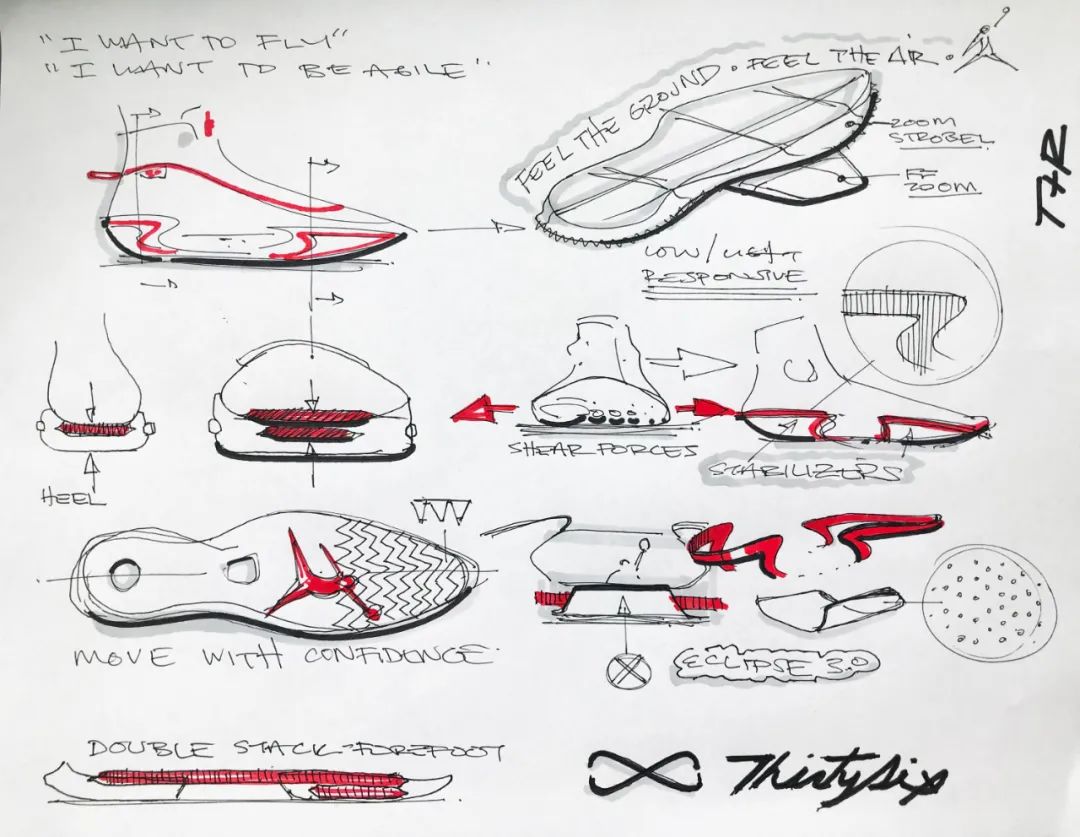 "I WANT TO FLY"
"I WANT TO BE AGILE"
FEEL THE GROUND. FEEL THE AIR.
ZOOM
STROBEL
FF
ZOOM
LOW/LIGHT
RESPONSIVE
SHEAR FORCES
STABILIZERS
HEEL
MOVE WITH CONFIDENCE.
ECLIPSE 3.0
DOUBLE STACK-FOREFOOT
ThirtySix